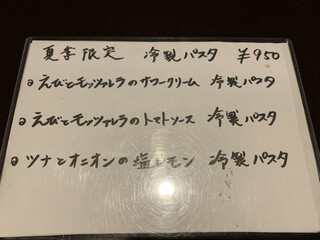 夏季限定 冷製パスタ ¥950
◦ えびとモッツァレラのサワークリーム 冷製パスタ
◦ えびとモッツァレラのトマトソース 冷製パスタ
◦ ツナとオニオンの塩レモン 冷製パスタ